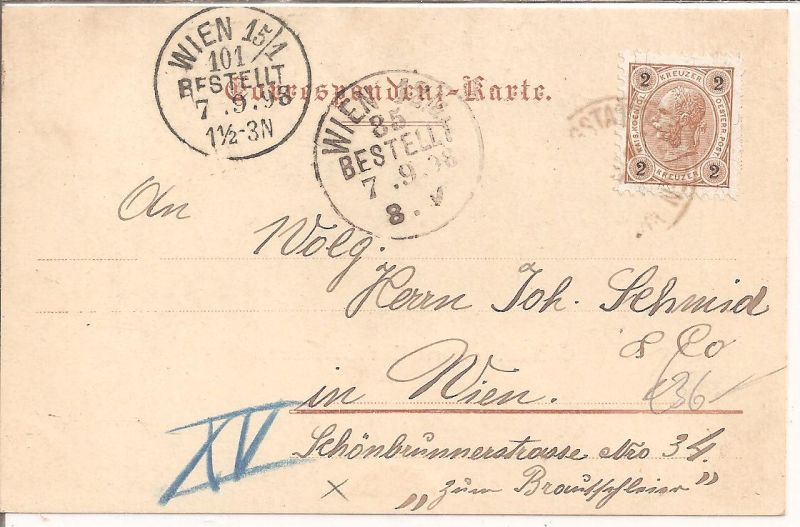 WIEN 15/1
101
BESTELLT
7.9.98
1½-3N
Correspondenz-Karte.
WIEN
85
BESTELLT
7.9.98
8.V
2 KREUZER 2
KAIS. KOENIGL. OESTERR. POST
2 KREUZER 2
An
Wolg.
Herrn Joh. Schmid
& Co
in Wien.
XV
Schönbrunnerstrasse Nro 34
„Zum Brautschleier"